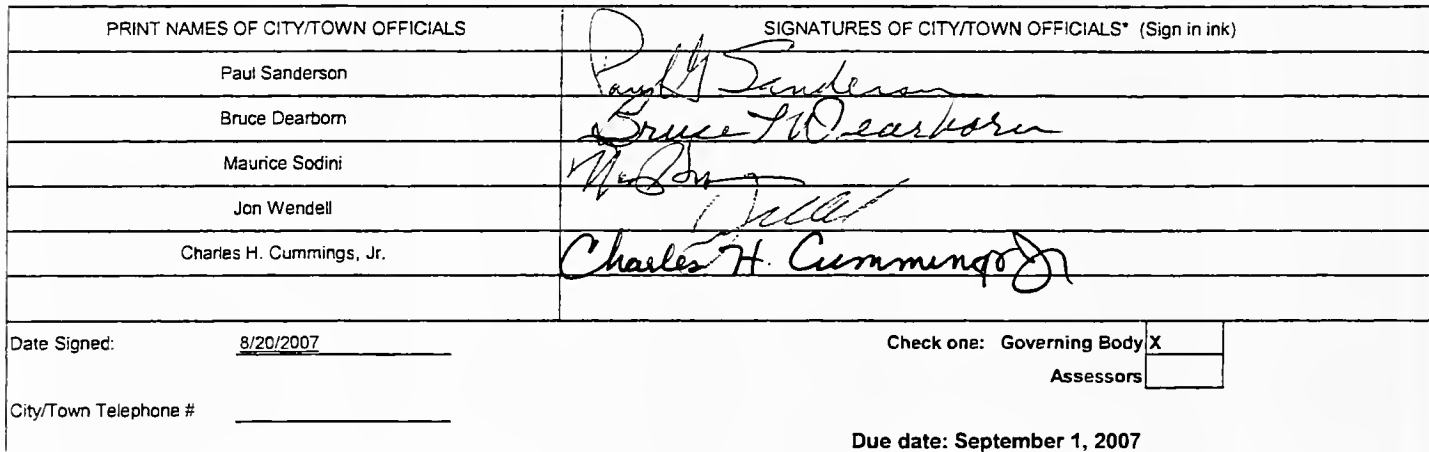 PRINT NAMES OF CITY/TOWN OFFICIALS SIGNATURES OF CITY/TOWN OFFICIALS* (Sign in ink)
Paul Sanderson Paul G Sanderson
Bruce Dearborn Bruce M Dearborn
Maurice Sodini
Jon Wendell
Charles H. Cummings, Jr. Charles H. Cummings Jr
Date Signed: 8/20/2007 Check one: Governing Body X
Assessors
City/Town Telephone #
Due date: September 1, 2007